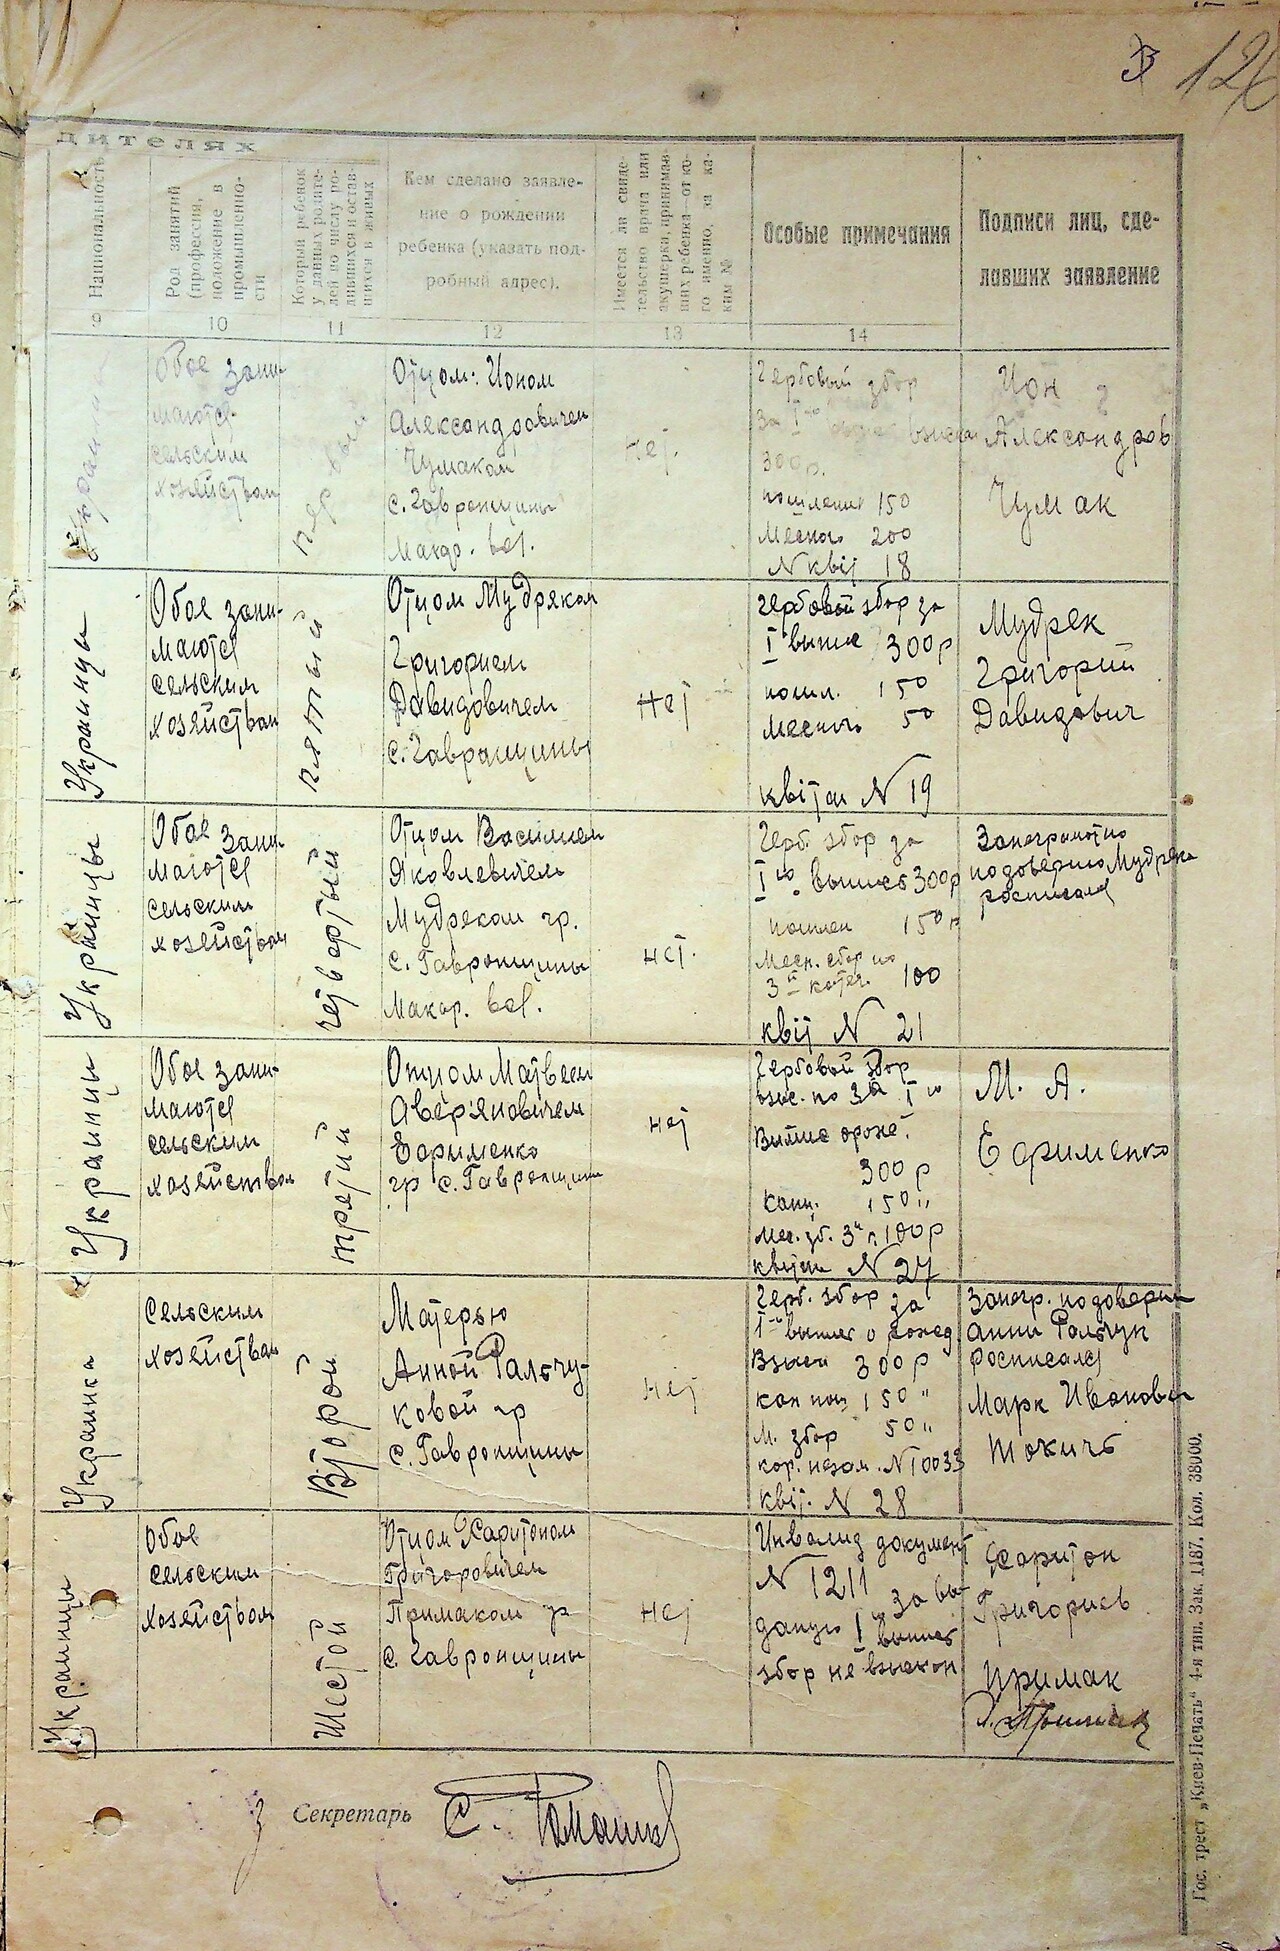 3 12
дителях
Национальность
Род занятий
(профессия,
положение в
промышленно-
сти
Который ребенок
у данных родите-
лей по числу ро-
дившихся и остав-
шихся в живых
Кем сделано заявле-
ние о рождении
ребенка (указать под-
робный адрес).
Имеется ли свиде-
тельство врача или
акушерки, принимав-
ших ребенка—от ко-
го именно, за ка-
ким №
Особые примечания
Подписи лиц, сде-
лавших заявление
9 10 11 12 13 14
Обое зани-
маются
сельским
хозяйством
Первый
Отцом: Ионом
Александровичем
Чумаком
с. Гавронщины
Макар. вол.
Нет.
Гербовый збор
300 р.
150
Месного 200
N квіт 18
Ион
Александров
Чумак
Украинцы
Обое зани-
маются
сельским
хозяйством
пятый
Отцом Мудреком
Григорием
Давидовичем
с. Гавронщины
Нет
Гербовый збор за
I выше 300 р
пошл. 150
Месного 50
квітан N 19
Мудрек
Григорий
Давидович
Украинцы
Обое зани-
маются
сельским
хозяйством
четвертый
Отцом Василием
Яковлевичем
Мудреком гр.
с. Гавронщины
Макар. вол.
нет.
Герб. збор за
300 р
150 р
Месн. сбор по
3й катег. 100
квіт N 21
Занеграмотно
по доверию Мудрека
росписался
Украинцы
Обое зани-
маются
сельским
хозяйством
третий
Отцом Матвеем
Аверяновичем
Ефрименко
гр с. Гавронщины
нет
Гербовый збор
взыс. по за I го
300 р
канц. 150 "
Мес. зб. 3й к. 100 р
квітан N 27
М. А.
Ефрименко
Украинка
Сельским
хозяйством
Второй
Матерью
Анной Гальчу-
ковой гр
с. Гавронщины
Нет
Герб. збор за
Взыск 300 р
150 "
М. збор 50 "
N 10033
Квіт. N 28
Занегр. по доверии
Анни Гальчук
росписался
Марк Иванович
Токичь
Украинцы
Обое
сельским
хозяйством
Шестой
Отцом Харитоном
Григоровичем
Примаком гр
с. Гавронщины
Нет
Инвалид документ
N 1211 за вы-
даную I вышеь
збор не взыскан
Харитон
Григорись
Примак
Секретарь
Гос. трест „Киев-Печать“ 4-я тип. Зак. 1187. Кол. 38000.